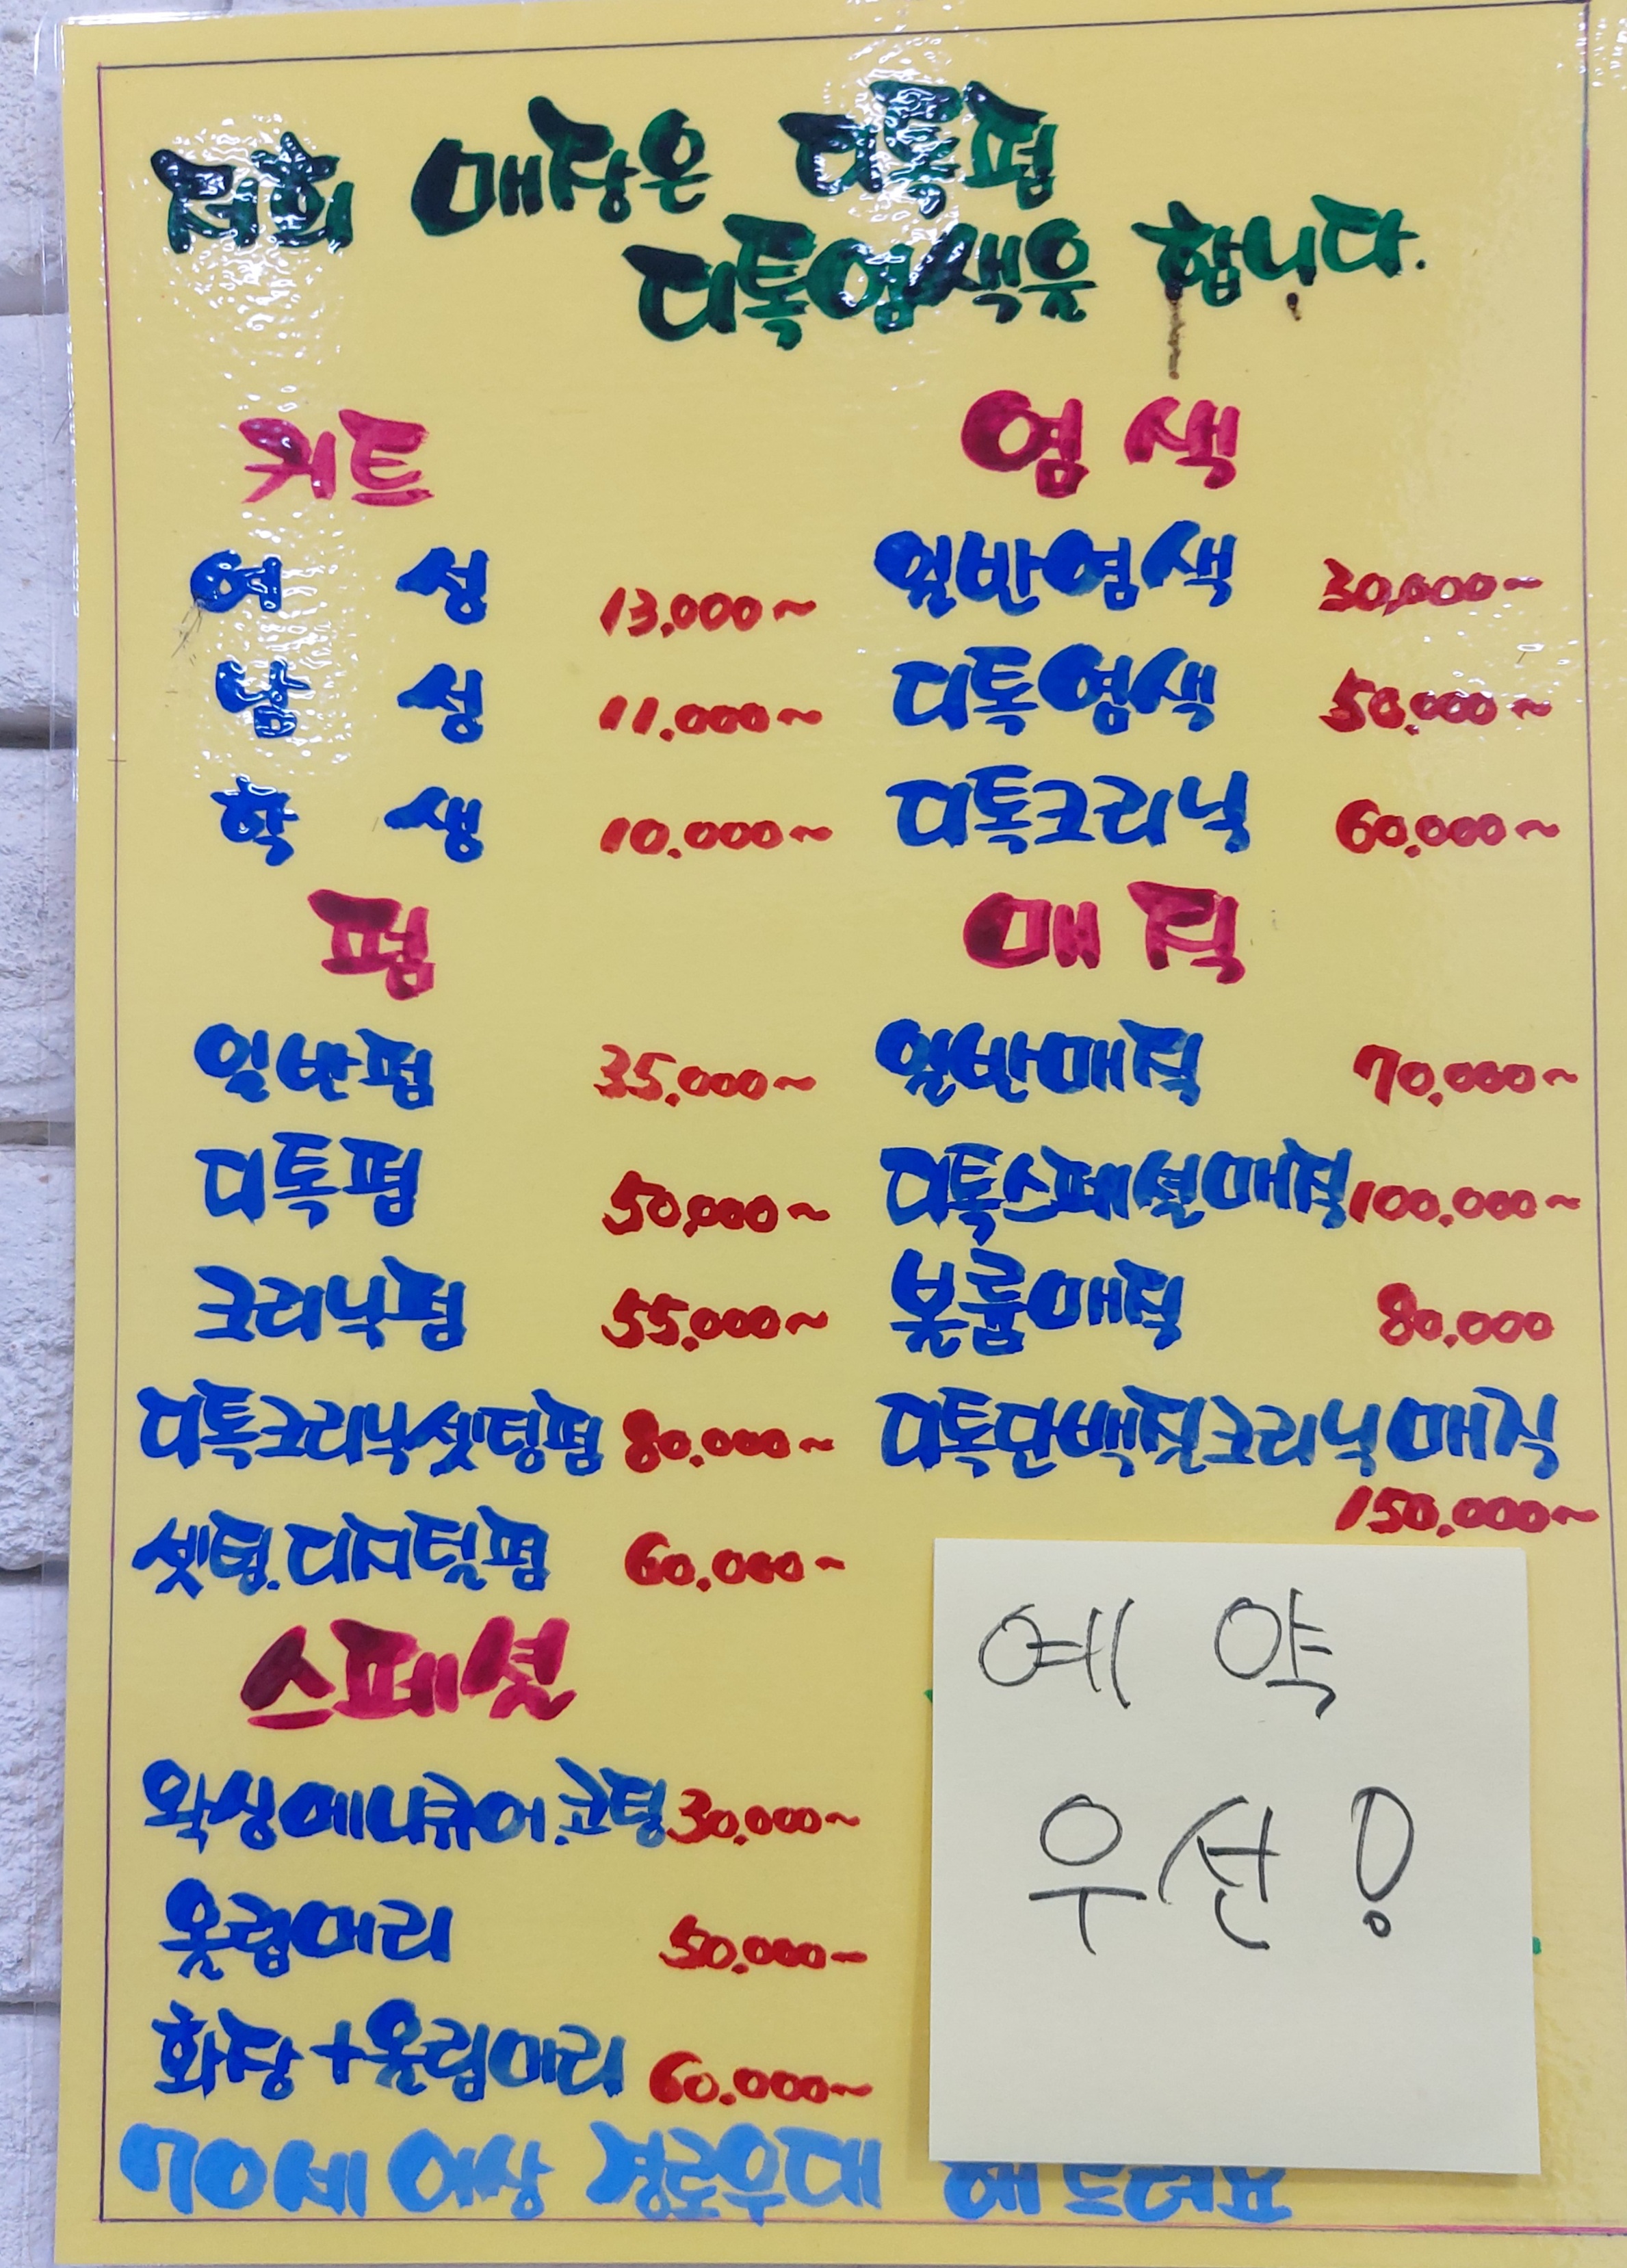 저희 매장은 디톡펌
디톡염색을 합니다.
커트
여 성 13,000~
남 성 11.000~
학 생 10.000~
펌
일반펌 35,000~
디톡펌 50,000~
크리닉펌 55.000~
디톡크리닉셋팅펌 80.000~
셋팅.디지털펌 60.000~
스페셜
왁싱메니큐어.코팅 30,000~
올림머리 50.000~
화장+올림머리 60.000~
염 색
일반염색 30,000~
디톡염색 50,000~
디톡크리닉 60,000~
매 직
일반매직 70,000~
디톡스페셜매직 100,000~
볼륨매직 80,000
디톡단백질크리닉매직
150,000~
예 약
우선!
70세 이상 경로우대 해 드려요